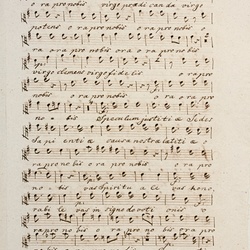 o ra pro nobis virgo prædicanda virgo
potens ora pro nobis ora pro
ora ora pro nobis ora o ra pro nobis
virgo clemens virgo fidelis o ra pro
nobis o ra pro nobis o ra pro
no bis Speculum justitiæ Sedes
Sapi entiæ causa nostræ lætitiæ o
ra pro nobis o ra pro nobis o ra pro
no bis vas Spiritu a le vas hono
ra pro nobis o ra pro no bis o ra